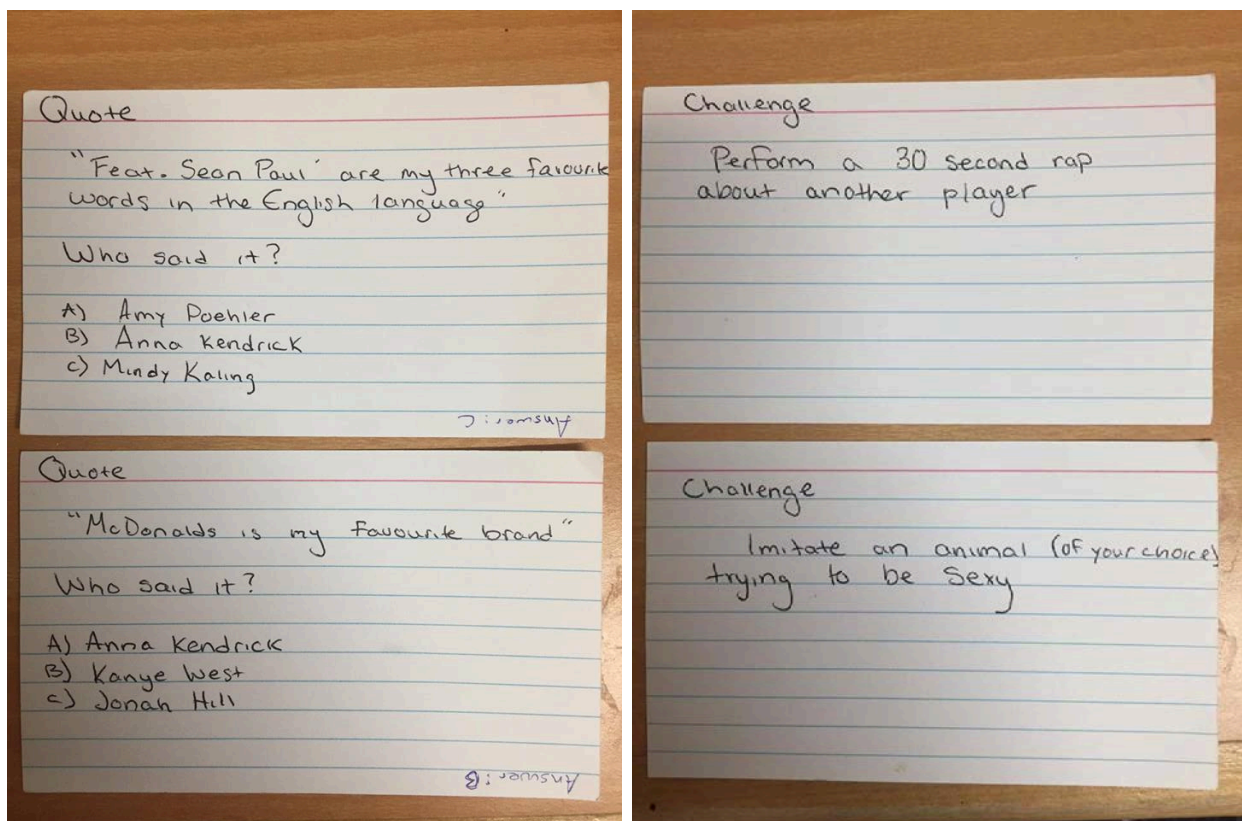 Quote
"Feat. Sean Paul' are my three favourite
words in the English language"
Who said it?
A) Amy Poehler
B) Anna Kendrick
C) Mindy Kaling
Answer: C
Quote
"McDonalds is my favourite brand"
Who said it?
A) Anna Kendrick
B) Kanye West
C) Jonah Hill
Answer: B
Challenge
Perform a 30 second rap
about another player
Challenge
Imitate an animal (of your choice)
trying to be sexy